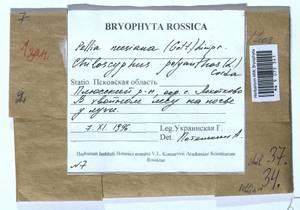 7
BRYOPHYTA ROSSICA
1 зал.
Pellia neesiana (Gott) Limpr.
Chiloscyphus polyanthos (L.)
Corda
Statio. Псковская область
Плюсский р-н, окр. с.
В хвойном лесу на почве
у лужи.
7. XI. 1996
Leg. Украинская Г.
Det. Потемкин А.
N7
Herbarium Instituti Botanici nomine V.L. Komarovii Academiae Scientiarum
Rossicae
37.
34.